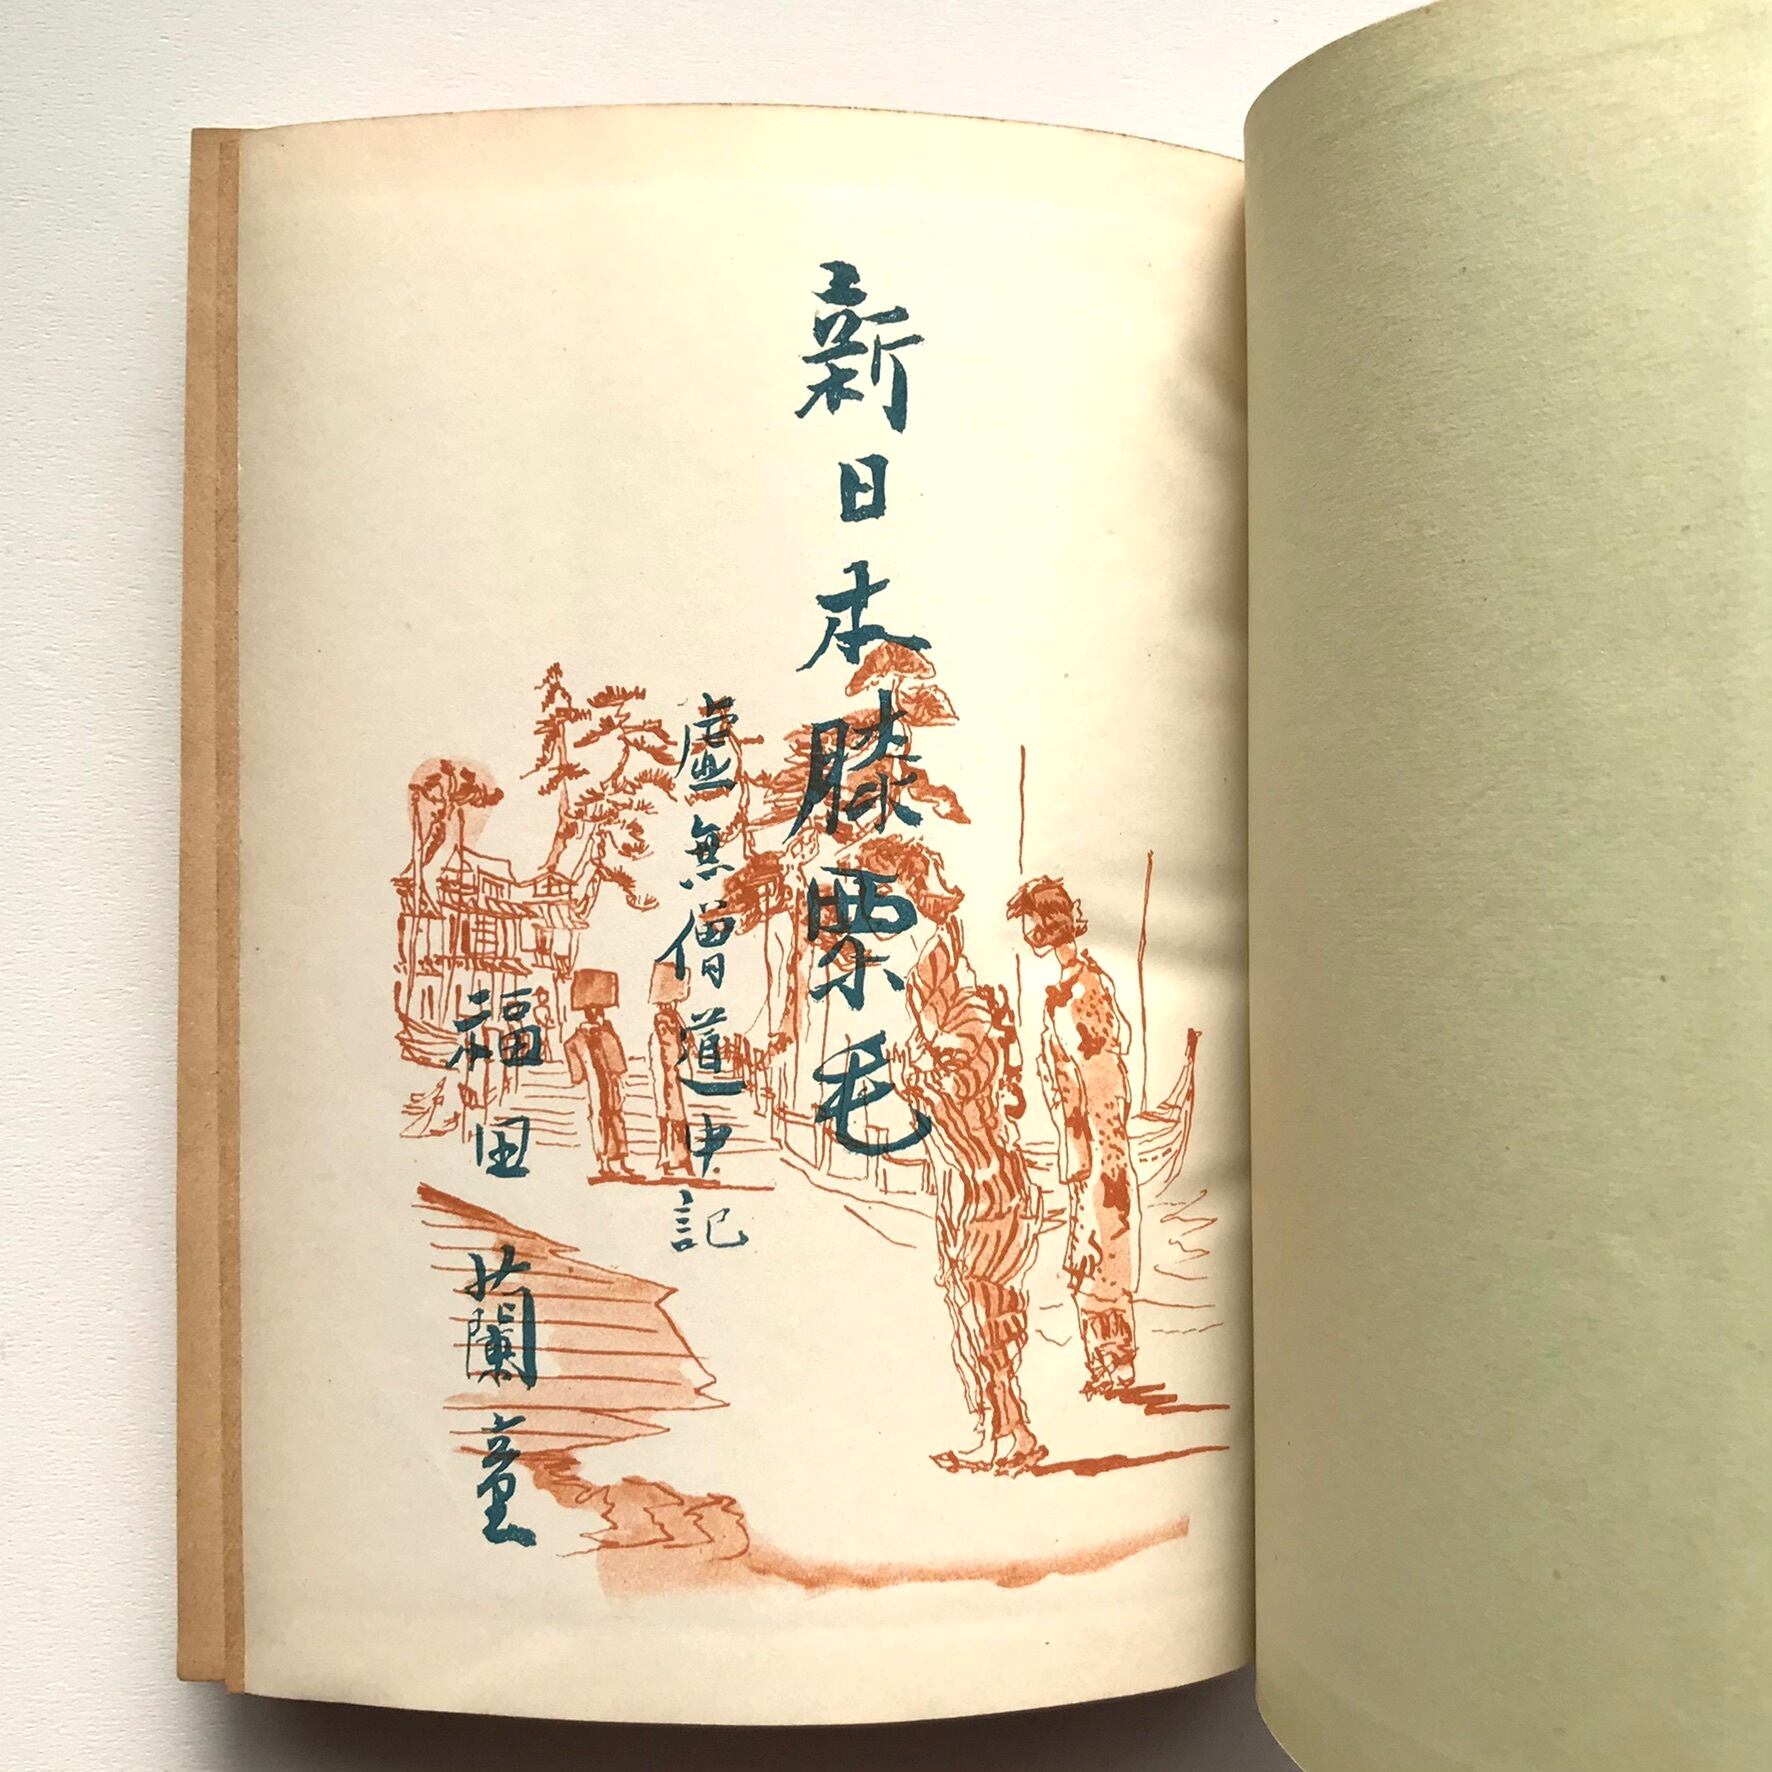 新日本膝栗毛
虚無僧道中記
福田蘭童